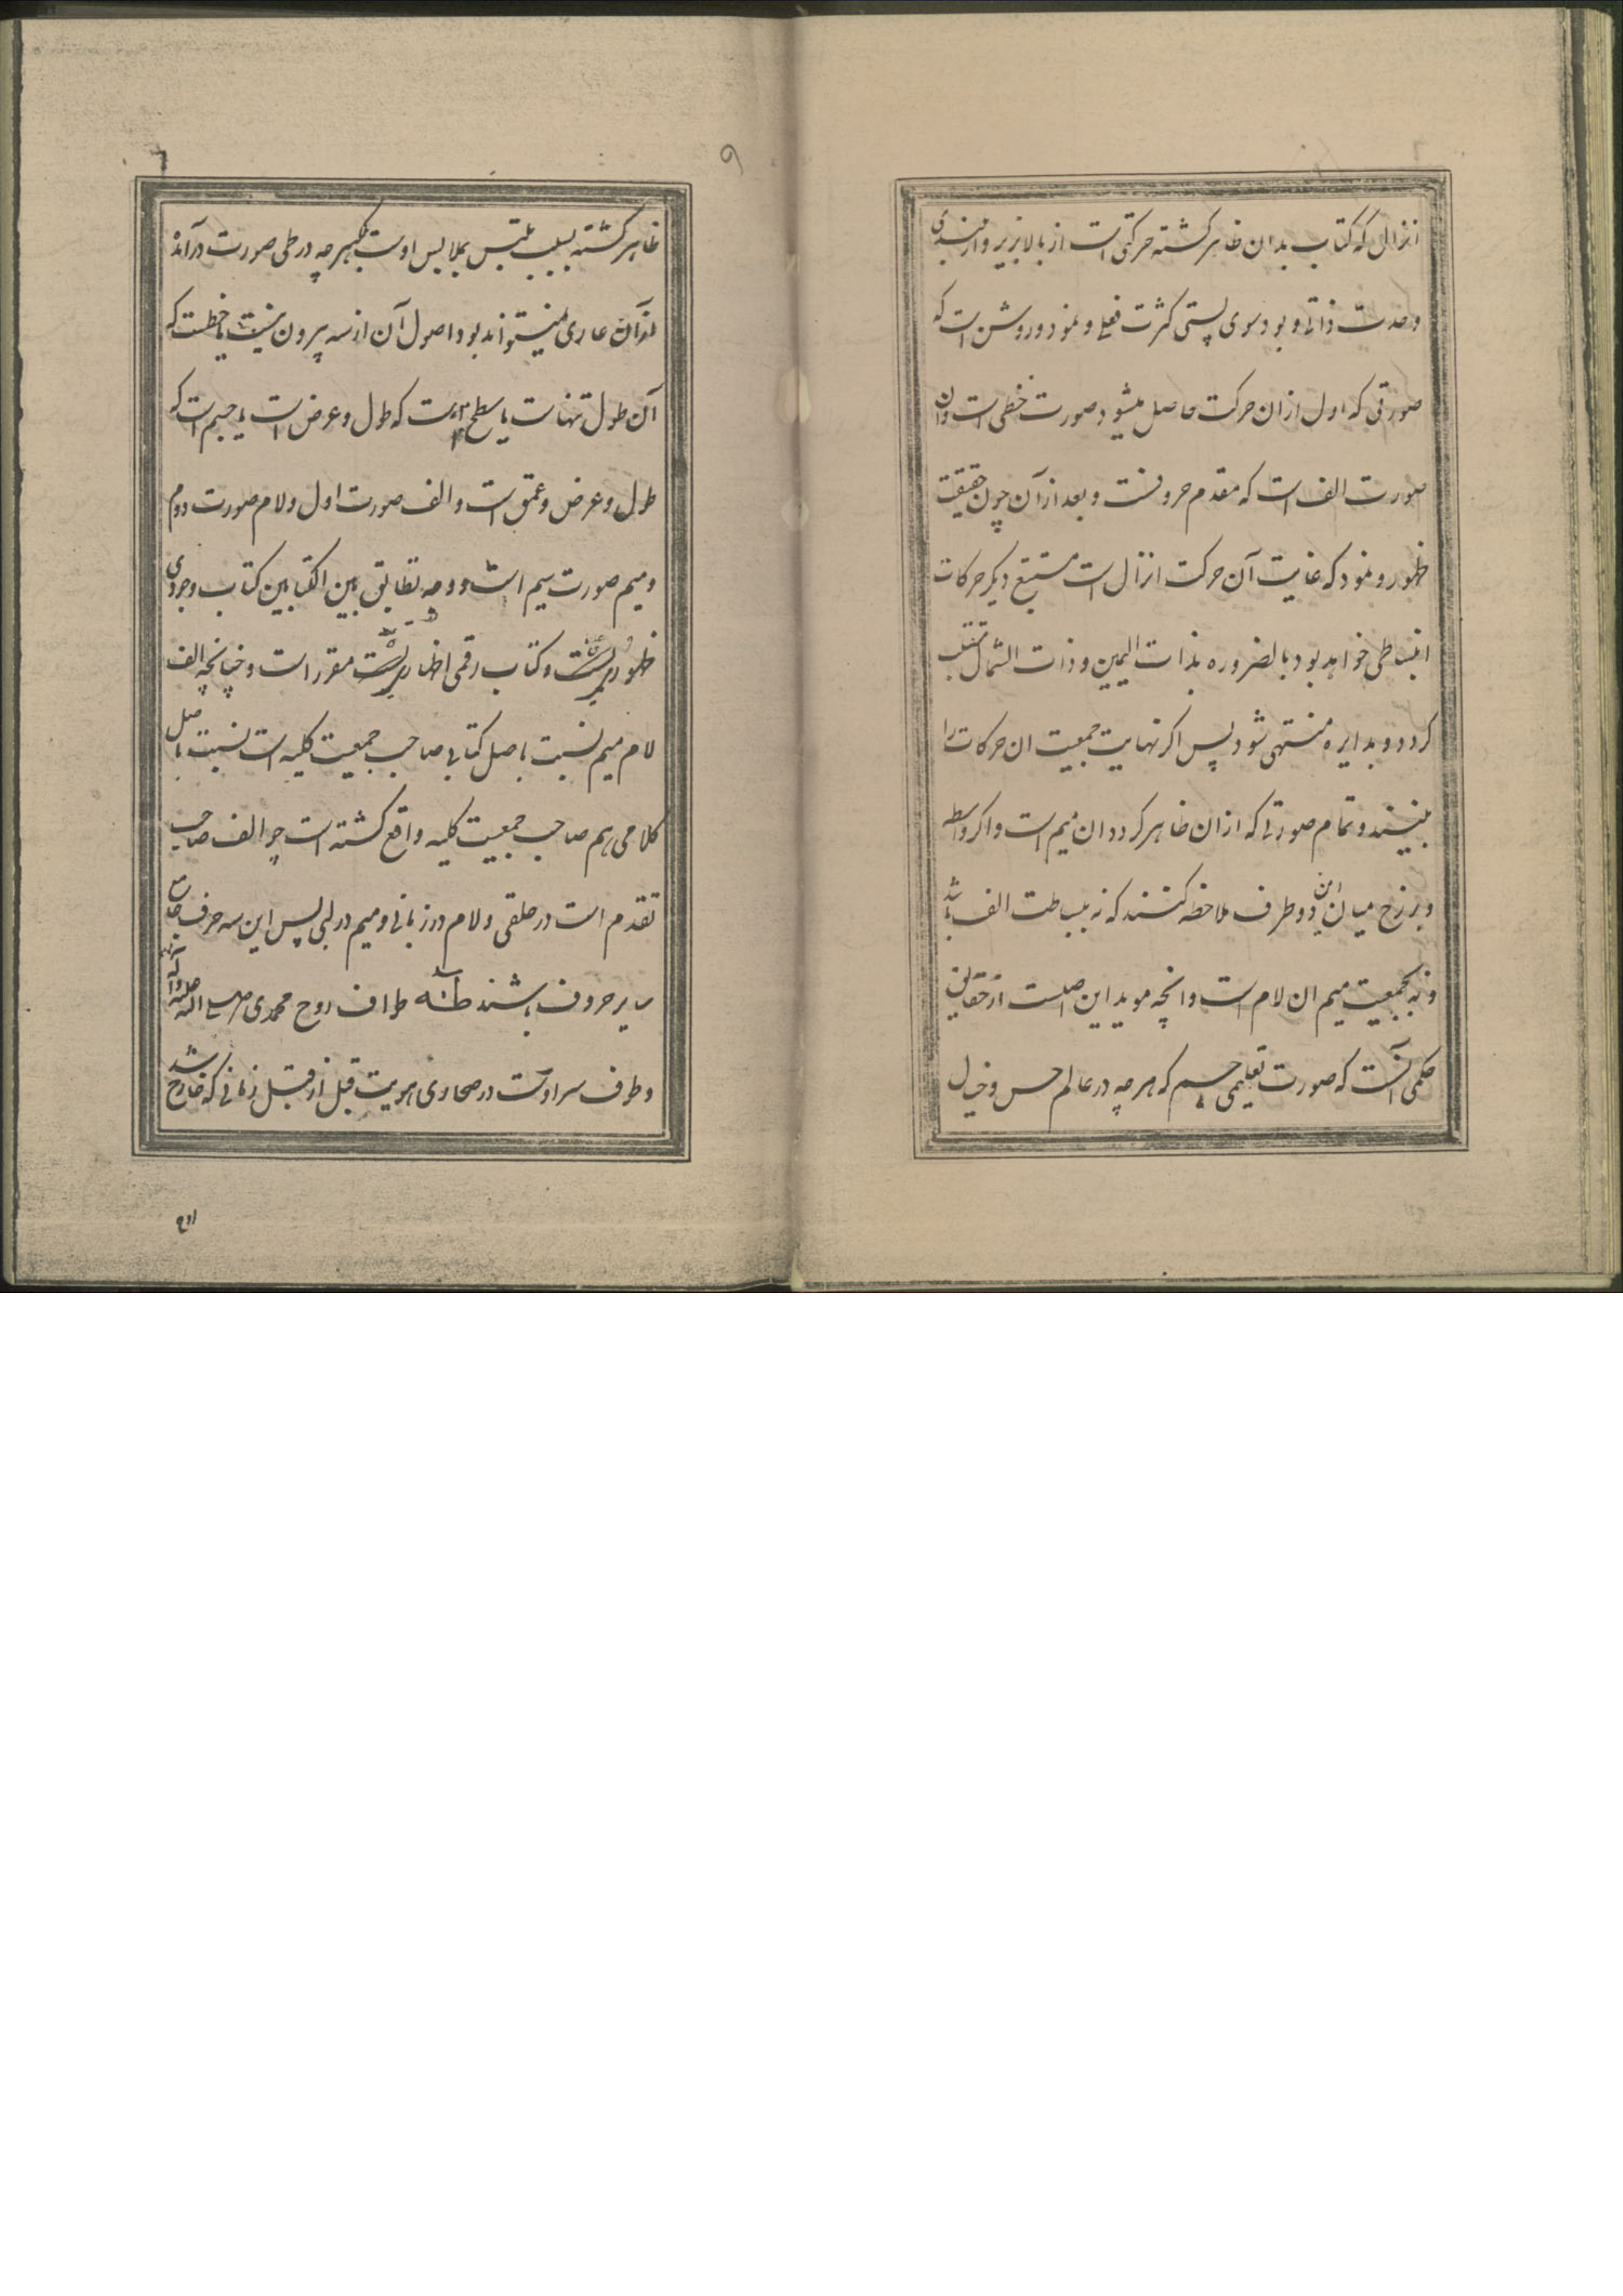 انزال که کتاب بدان ظاهر کشته حرکتی است از بالا بزیر و از بلندی
وحدت ذاتی و بود سوی پستی کثرت فعلی و نمود و روشن است که
صورتی که اول ازان حرکت حاصل میشود صورت خطی است و ان
صورت الف است که مقدم حروفست و بعد ازان چون حقیقت
ظهور و نمود که غایت آن حرکت انزال است مستتبع دیکر حرکات
انبساطی خواهد بود بالضروره بذات الیمین و ذات الشمال منقلب
کردد و بدایره منتهی شود پس اکر نهایت جمعیت ان حرکات را
ببینند و تمام صورتی که ازان ظاهر کردد ان میم است و اکر واسطه
و برزخ میان این دو طرف ملاحظه کنند که نه ببساطت الف باشد
و نه بجمعیت میم ان لام است و انچه موید این اصلست از حقایق
حکمی آنست که صورت تعلیمی جسم که هر چه در عالم حس و خیال
٦
٩
ظاهر کشته بسبب تلبس بملابس اوست بلکه هر چه در طی صورت درآمده
از آن عاری نمیتواند بود و اصول آن از سه بیرون نیست یا خطست که
آن طول تنهاست یا سطح است که طول و عرض است یا جسم است که
طول و عرض و عمق است و الف صورت اول و لام صورت دوم
و میم صورت سیم است و وجه تطابق بین الکتابین کتاب وجودی
ظهور و کتاب رقمی اظهار مقرر است و چنانچه الف
لام میم نسبت باصل کتابی صاحب جمعیت کلیه است نسبت باصل
کلامی هم صاحب جمعیت کلیه واقع کشته است چو الف صاحب
تقدم است در حلقی و لام در زبانی و میم در لبی پس این سه حرف جامع
سایر حروف باشند طواف روح محمدی صلی الله علیه و آله
و طوف سر اوست در صحاری هویت قبل از قبل زمانی که خارج شد